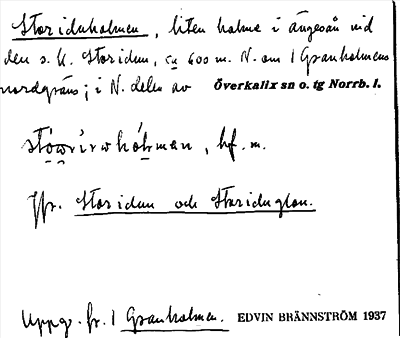 Storidnholmen, liten holme i ängesån vid
den s. k. Storidun, ca 600 m. N. om 1 Granholmens
nordgräns; i N. delen av Överkalix sn o. tg Norrb. l.
hf. m.
Jfr. Storidun och Storidnglon.
Uppg. fr. 1 Granholmen. EDVIN BRÄNNSTRÖM 1937